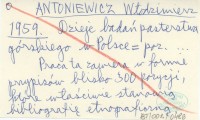 ANTONIEWICZ Włodzimierz
1959. Dzieje badań pasterstwa
górskiego w Polsce = poz. ...
Praca ta zawiera w formie
przypisów blisko 300 pozycji,
które właściwie stanowią
bibliografię etnograficzną